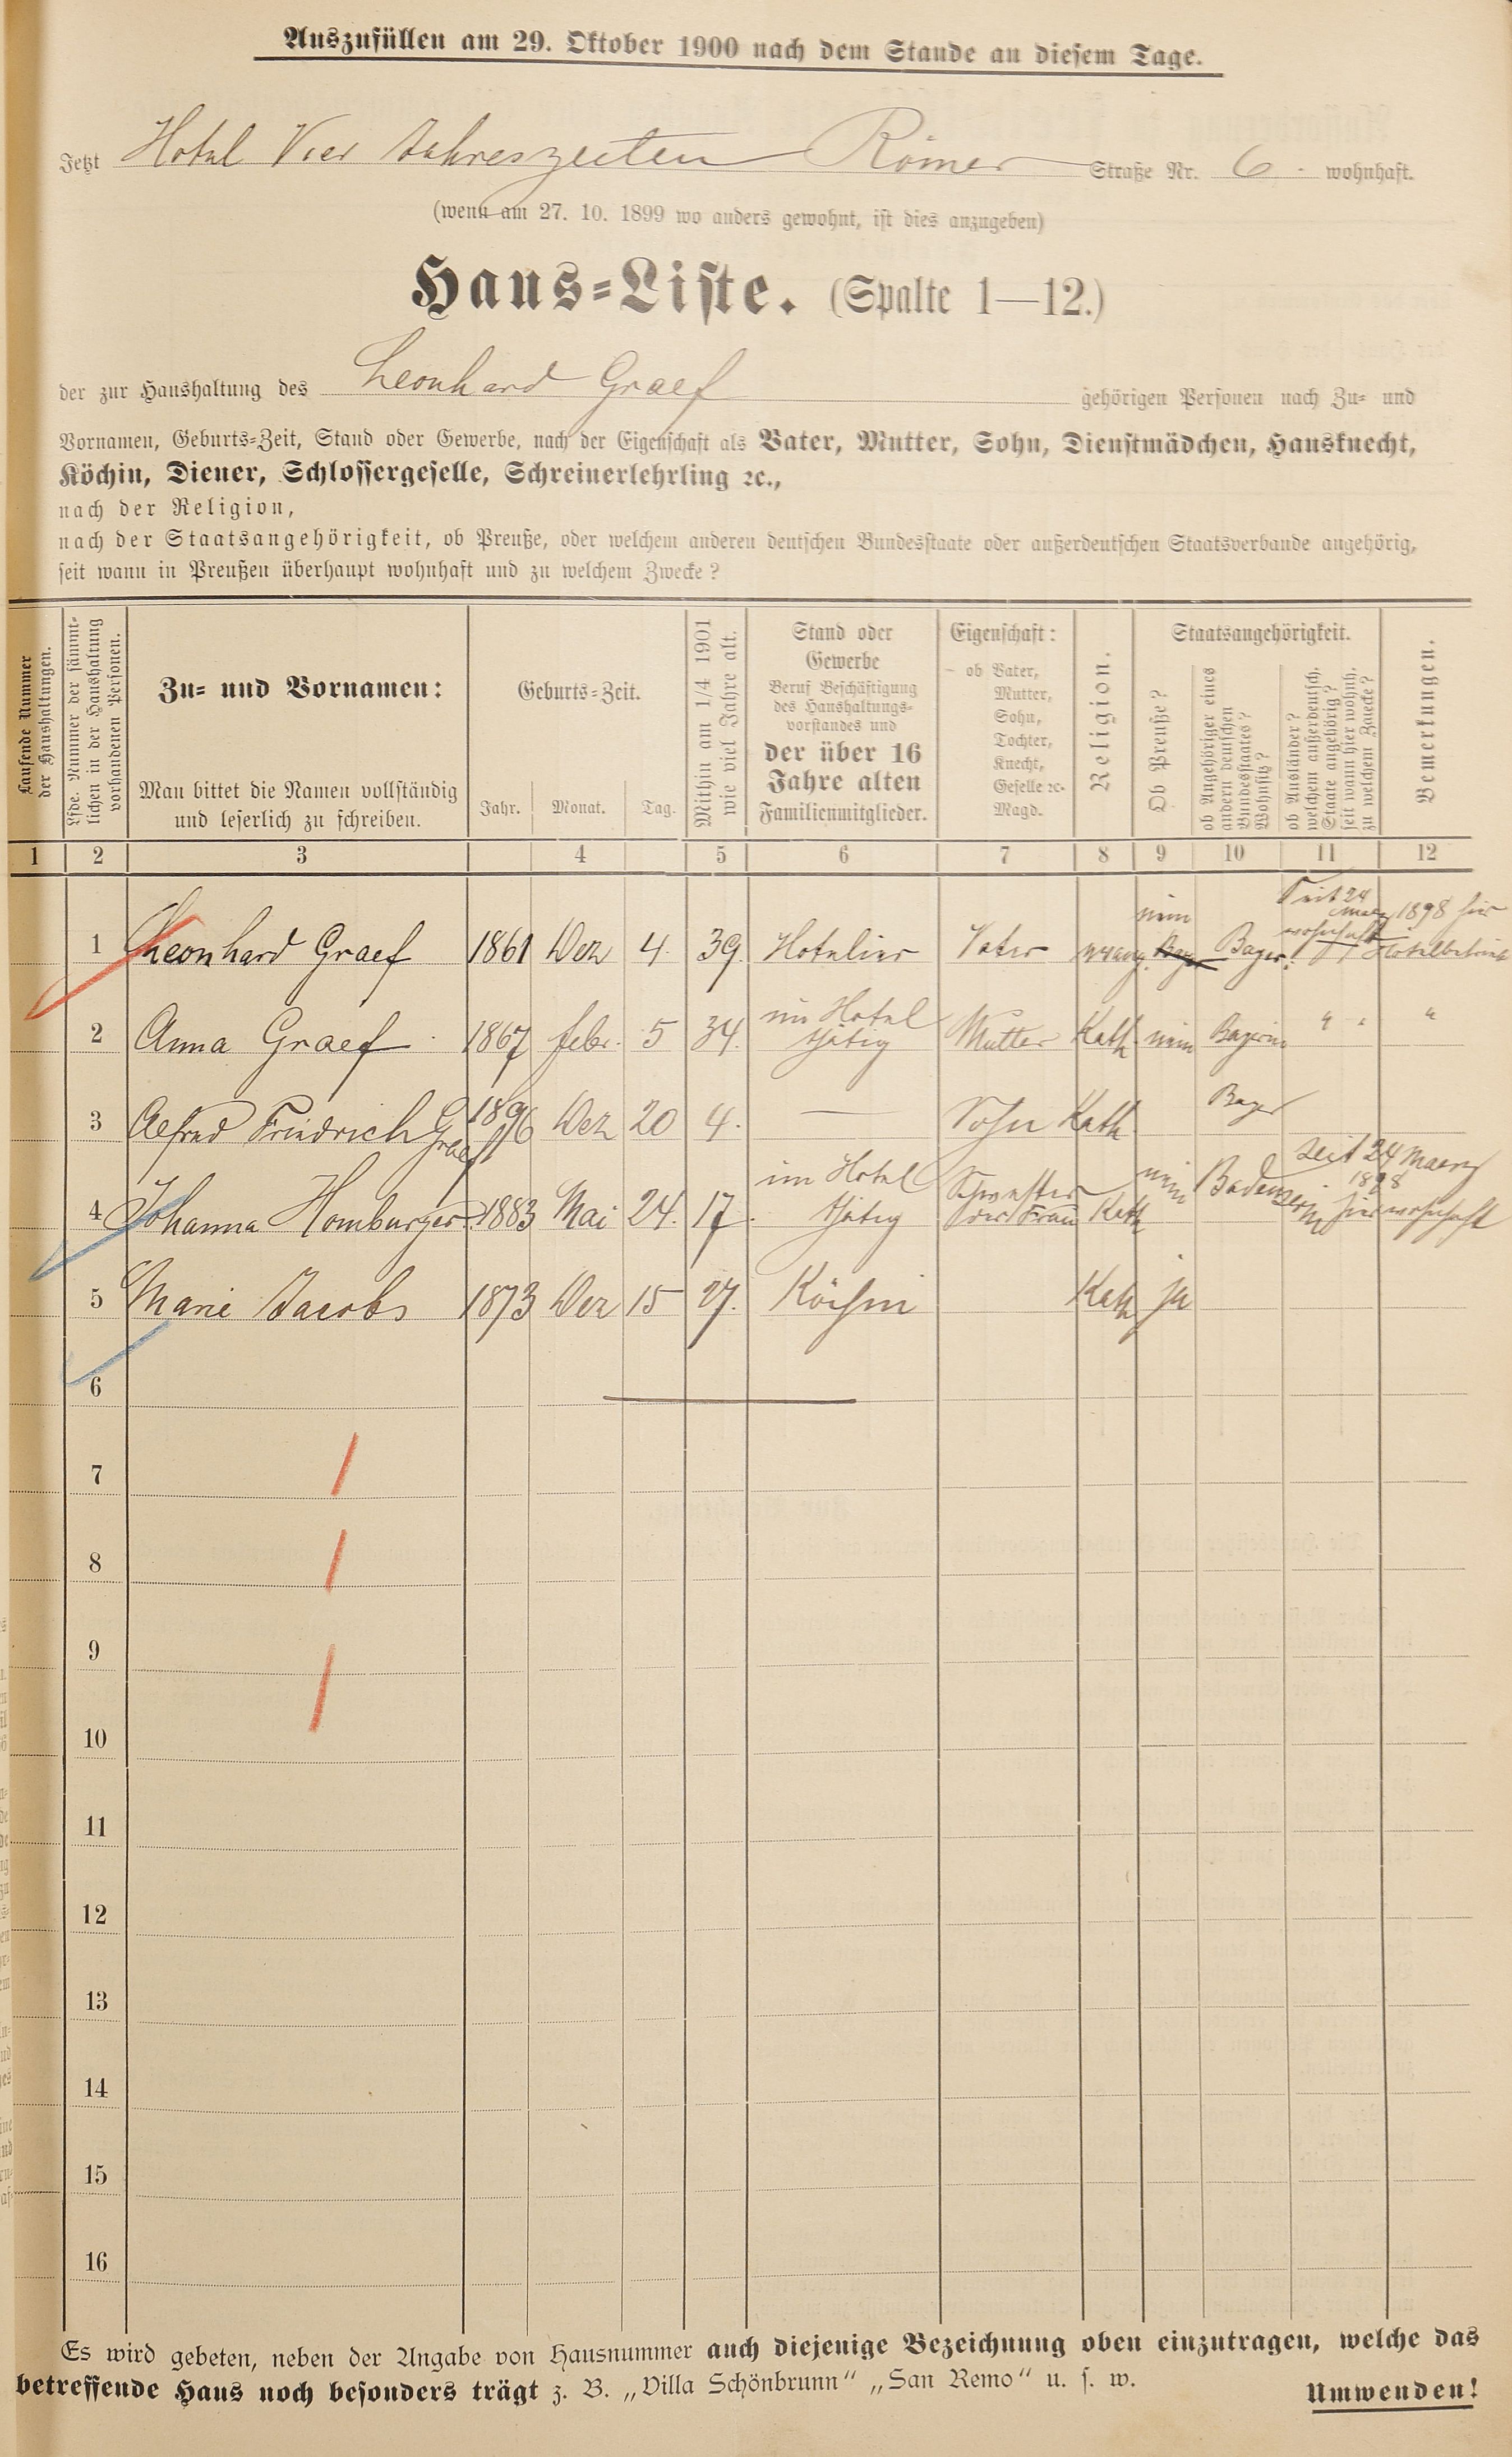 Auszufüllen am 29. Oktober 1900 nach dem Stande an diesem Tage.
Jetzt Hotel Vier Jahreszeiten Römer Straße Nr. 6. wohnhaft.
(wenn am 27. 10. 1899 wo anders gewohnt, ist dies anzugeben)
Haus-Liste. (Spalte 1—12.)
der zur Haushaltung des Leonhard Graef gehörigen Personen nach Zu- und
Vornamen, Geburts-Zeit, Stand oder Gewerbe, nach der Eigenschaft als Vater, Mutter, Sohn, Dienstmädchen, Hausknecht,
Köchin, Diener, Schlossergeselle, Schreinerlehrling ꝛc.,
nach der Religion,
nach der Staatsangehörigkeit, ob Preuße, oder welchem anderen deutschen Bundesstaate oder außerdeutschen Staatsverbande angehörig,
seit wann in Preußen überhaupt wohnhaft und zu welchem Zwecke?
Laufende Nummer
der Haushaltungen.
Lfde. Nummer der sämmt-
lichen in der Haushaltung
vorhandenen Personen.
Zu- und Vornamen:
Man bittet die Namen vollständig
und leserlich zu schreiben.
Geburts-Zeit.
Jahr. Monat. Tag.
Mithin am 1/4 1901
wie viel Jahre alt.
Stand oder
Gewerbe
Beruf Beschäftigung
des Haushaltungs-
vorstandes und
der über 16
Jahre alten
Familienmitglieder.
Eigenschaft:
– ob Vater,
Mutter,
Sohn,
Tochter,
Knecht,
Geselle ꝛc.
Magd.
Religion.
Staatsangehörigkeit.
Ob Preuße?
ob Angehöriger eines
andern deutschen
Bundesstaates?
Wohnsitz?
ob Ausländer?
welchem außerdeutsch.
Staate angehörig?
seit wann hier wohnh.
zu welchem Zwecke?
Bemerkungen.
1 2 3 4 5 6 7 8 9 10 11 12
1 Leonhard Graef 1861 Dez 4. 39. Hotelier Vater evang. nein Bayer Bayer. Seit 24 Maerz 1898 hier wohnhaft Hotelbetrieb
2 Anna Graef 1867 febr. 5 34. im Hotel thätig Mutter Kath. nein Bayerin " " "
3 Alfred Friedrich Graef 1896 Dez 20 4. — Sohn Kath. Bayer
4 Johanna Homburger 1883 Mai 24. 17. im Hotel thätig Schwester der Frau Kath nein Badenserin seit 24 Maerz 1898 hier wohnhaft
5 Marie Jacobs 1873 Dez 15 27. Köchin Kath ja
6
7
8
9
10
11
12
13
14
15
16
Es wird gebeten, neben der Angabe von Hausnummer auch diejenige Bezeichnung oben einzutragen, welche das
betreffende Haus noch besonders trägt z. B. „Villa Schönbrunn“ „San Remo“ u. s. w.
Umwenden!